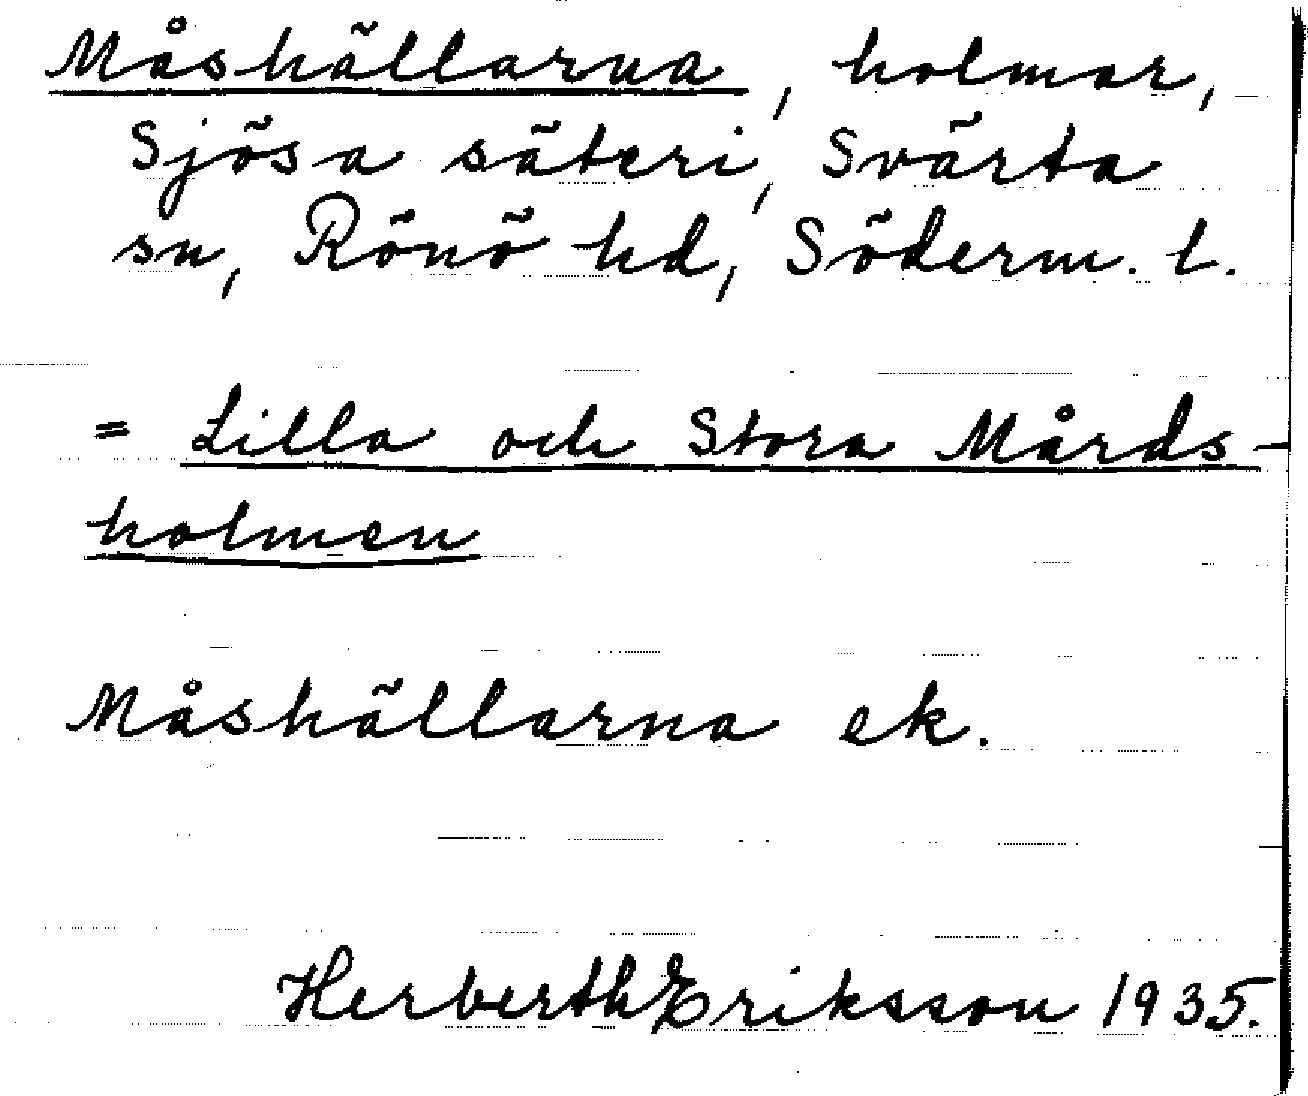 Måshällarna, holmar,
Sjösa säteri, Svärta
sn, Rönö hd, Söderm. l.
= Lilla och Stora Mårds-
holmen
Måshällarna ek.
Herberth Eriksson 1935.